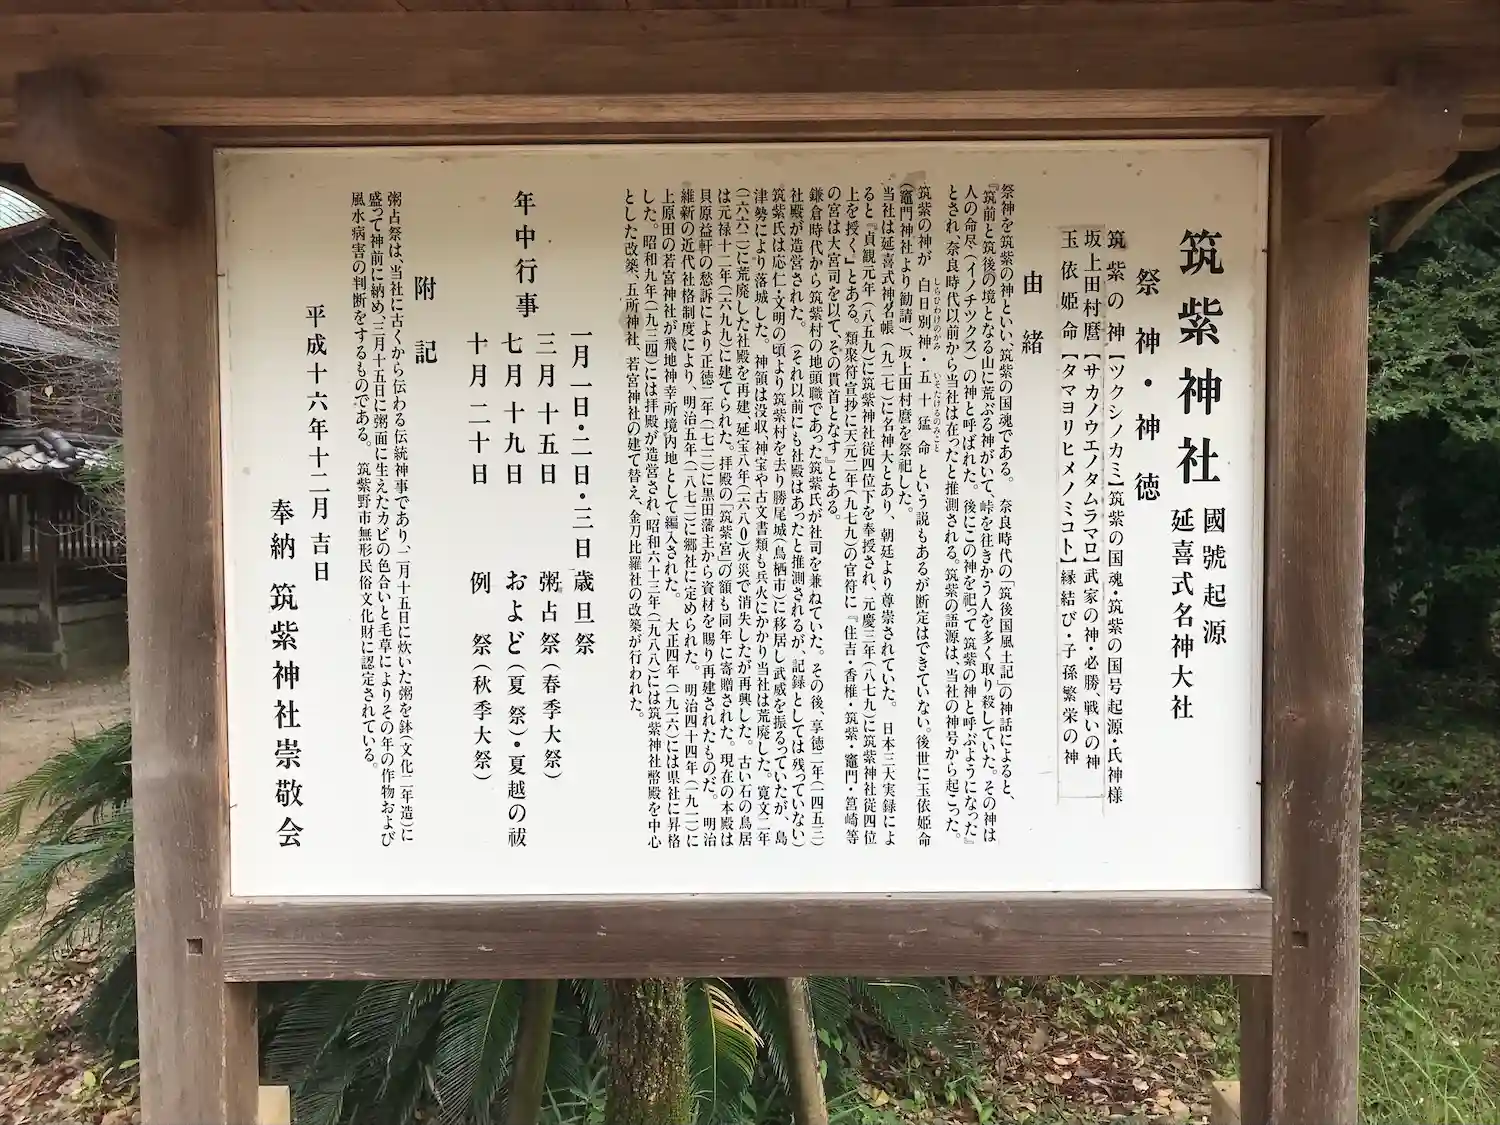 筑紫神社 國號起源
延喜式名神大社
祭神・神徳
筑紫の神【ツクシノカミ】筑紫の国魂・筑紫の国号起源・氏神様
坂上田村麿【サカノウエノタムラマロ】武家の神・必勝、戦いの神
玉依姫命【タマヨリヒメノミコト】縁結び・子孫繁栄の神
由緒
祭神を筑紫の神といい、筑紫の国魂である。 奈良時代の「筑後国風土記」の神話によると、
『筑前と筑後の境となる山に荒ぶる神がいて、峠を往きかう人を多く取り殺していた。その神は
人の命尽(イノチツクス)の神と呼ばれた。後にこの神を祀って 筑紫の神と呼ぶようになった』
とされ、奈良時代以前から当社は在ったと推測される。筑紫の語源は、当社の神号から起こった。
筑紫の神が 白日別神・五十猛命 という説もあるが断定はできていない。後世に玉依姫命
しらひわけのかみ いそたけるのみこと
(竈門神社より勧請)、坂上田村麿を祭祀した。
当社は延喜式神名帳(九二七)に名神大とあり、朝廷より尊崇されていた。 日本三大実録によ
ると『貞観元年(八五九)に筑紫神社従四位下を奉授され、元慶三年(八七九)に筑紫神社従四位
上を授く』とある。類聚符宣抄に天元二年(九七九)の官符に『住吉・香椎・筑紫・竈門・筥崎等
の宮は大宮司を以て、その貫首となす』とある。
鎌倉時代から筑紫村の地頭職であった筑紫氏が社司を兼ねていた。その後、享徳二年(一四五三)
社殿が造営された。(それ以前にも社殿はあったと推測されるが、記録としては残っていない)
筑紫氏は応仁・文明の頃より筑紫村を去り勝尾城(鳥栖市)に移居し武威を振るっていたが、島
津勢により落城した。 神領は没収、神宝や古文書類も兵火にかかり当社は荒廃した。寛文二年
(一六六二)に荒廃した社殿を再建、延宝八年(一六八〇)火災で消失したが再興した。 古い石の鳥居
は元禄十二年(一六九九)に建てられた。拝殿の「筑紫宮」の額も同年に寄贈された。現在の本殿は
貝原益軒の愁訴により正徳二年(一七一二)に黒田藩主から資材を賜り再建されたものだ。 明治
維新の近代社格制度により、明治五年(一八七二)に郷社に定められた。 明治四十四年(一九一一)に
上原田の若宮神社が飛地神幸所境内地として編入された。 大正四年(一九一六)には県社に昇格
した。昭和九年(一九三四)には拝殿が造営され、昭和六十三年(一九八八)には筑紫神社幣殿を中心
とした改築、五所神社、若宮神社の建て替え、金刀比羅社の改築が行われた。
年中行事
一月一日・二日・三日 歳旦祭
三月十五日 粥占祭(春季大祭)
七月十九日 およど(夏祭)・夏越の祓
十月二十日 例祭(秋季大祭)
附記
粥占祭は、当社に古くから伝わる伝統神事であり、二月十五日に炊いた粥を鉢(文化二年造)に
盛って神前に納め、三月十五日に粥面に生えたカビの色合いと毛草によりその年の作物および
風水病害の判断をするものである。 筑紫野市無形民俗文化財に認定されている。
平成十六年十二月 吉日
奉納 筑紫神社崇敬会